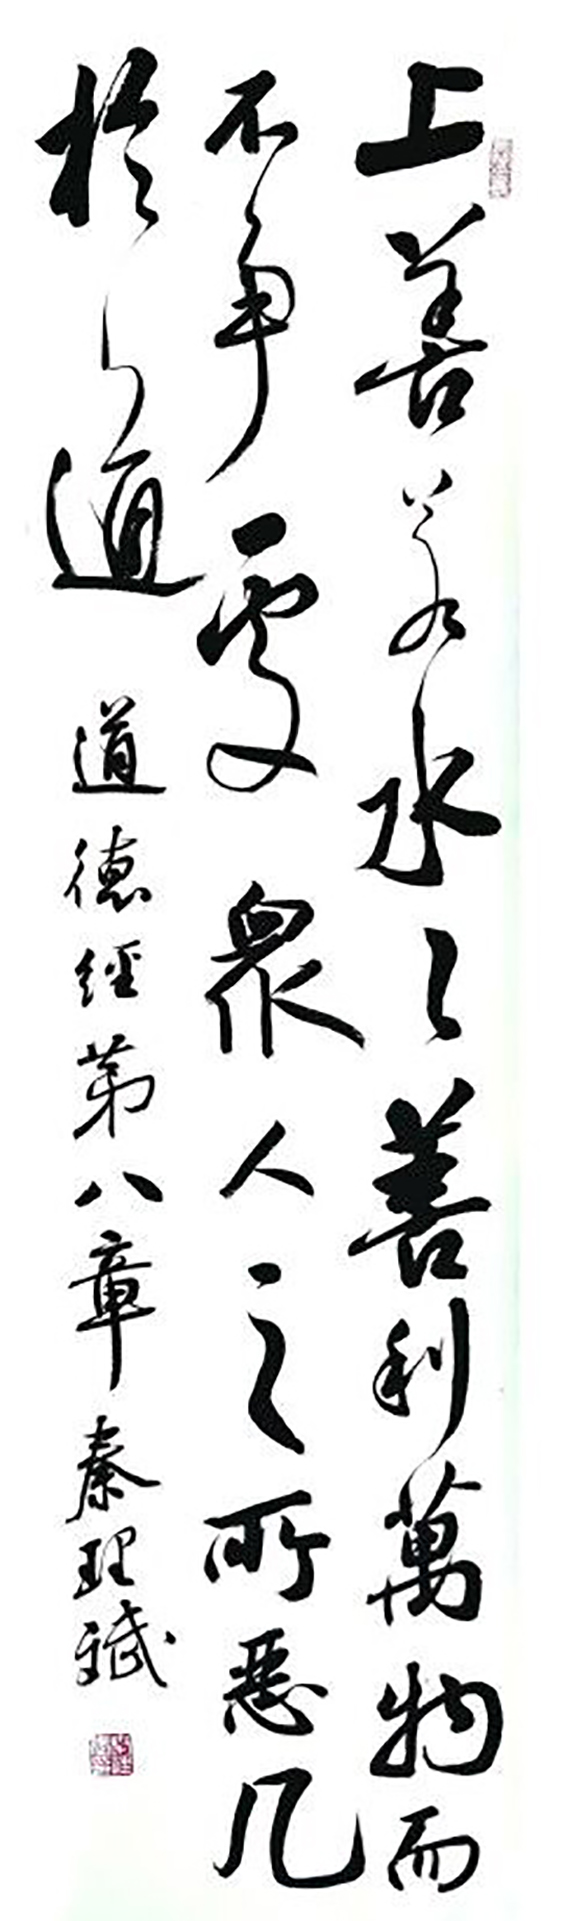 上善若水〻善利萬物而
不争處眾人之所惡几
於道 道德經第八章 秦理斌